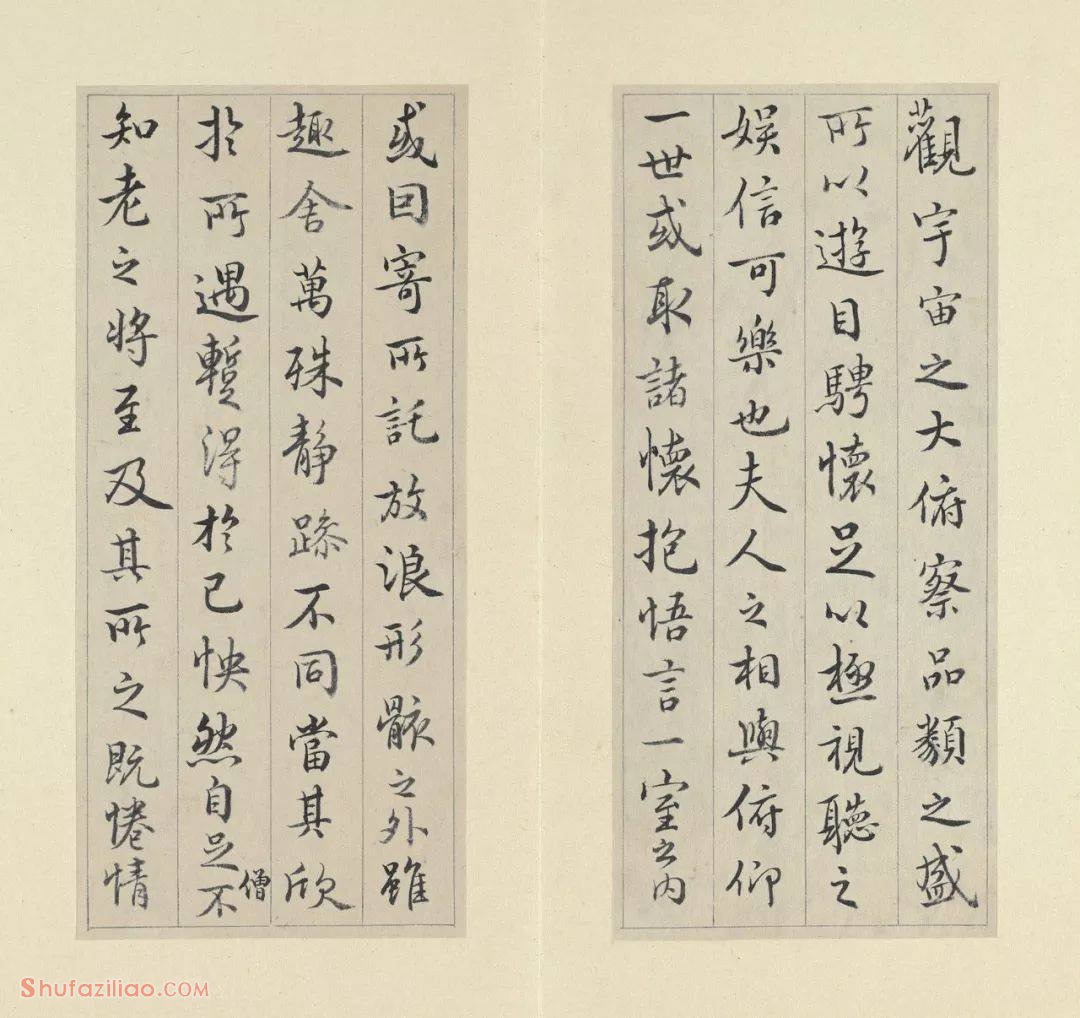 觀宇宙之大俯察品類之盛
所以遊目騁懷足以極視聽之
娛信可樂也夫人之相與俯仰
一世或取諸懷抱悟言一室之内
或回寄所託放浪形骸之外雖
趣舍萬殊静躁不同當其欣
於所遇暫得於己怏然自足不
僧
知老之將至及其所之既惓情
Shufaziliao.COM